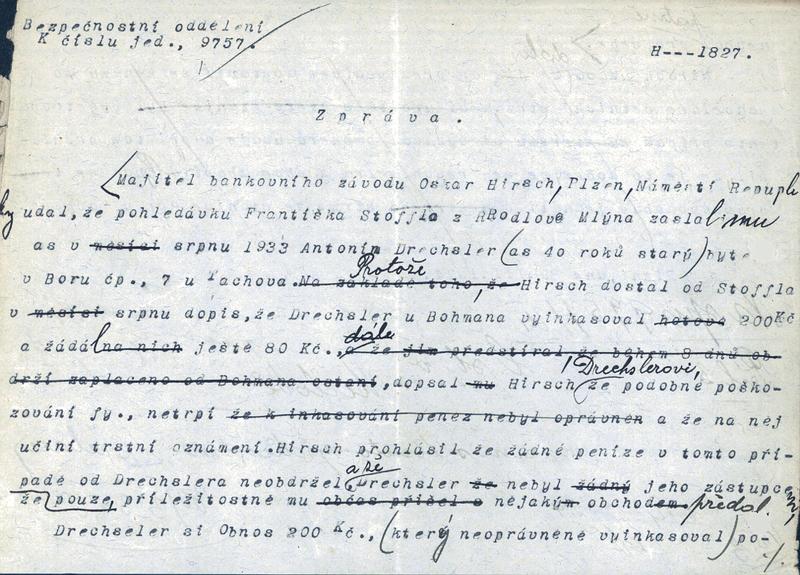 Bezpečnostní oddělení
K číslu jed., 9757.
H---1827.
Zpráva.
Majitel bankovního závodu Oskar Hirsch, Plzen, Náměstí Republi
ky udal, že pohledávku Františka Stoffla z RRodlově Mlýna zaslal mu
as v měsíci srpnu 1933 Antonín Drechsler (as 40 roků starý) byte
v Boru čp., 7 u Tachova. Na základě toho, že Protože Hirsch dostal od Stoffla
v měsíci srpnu dopis, že Drechsler u Bohmana vyinkasoval hotově 200 Kč
a žádal na nich ještě 80 Kč., dále a že jim předstíral že během 8 dnů ob-
drží zaplaceno od Bohmana ostaní, dopsal mu Hirsch Drechslerovi, že podobné poško-
zování fy., netrpí že k inkasování peněz nebyl oprávněn a že na něj
učiní trstní oznámení. Hirsch prohlásil že žádné peníze v tomto pří-
padě od Drechslera neobdržel, a že Drechsler že nebyl žádný jeho zástupcem,
že pouze, příležitostně mu občas přišel s nějakým obchodem předal.
Drechseler si Obnos 200 Kč., (který neoprávněně vyinkasoval) po-
./.